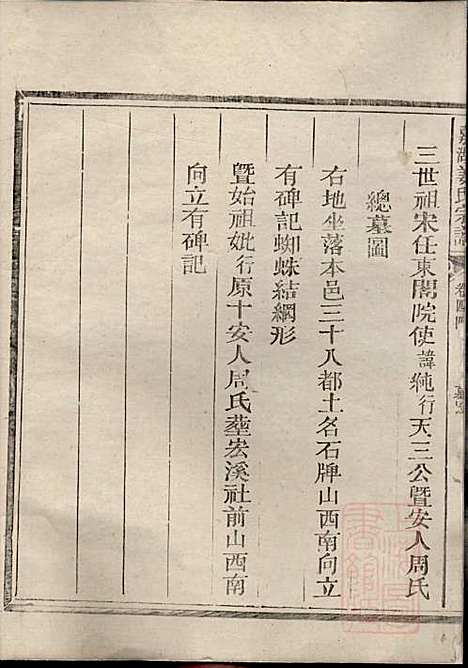 氏宗譜
三世祖宋任東閣院使諱純行天三公暨安人周氏
總墓圖
右地坐落本邑三十八都土名石牌山西南向立
有碑記蜘蛛結網形
暨始祖妣行原十安人周氏塟宏溪社前山西南
向立有碑記